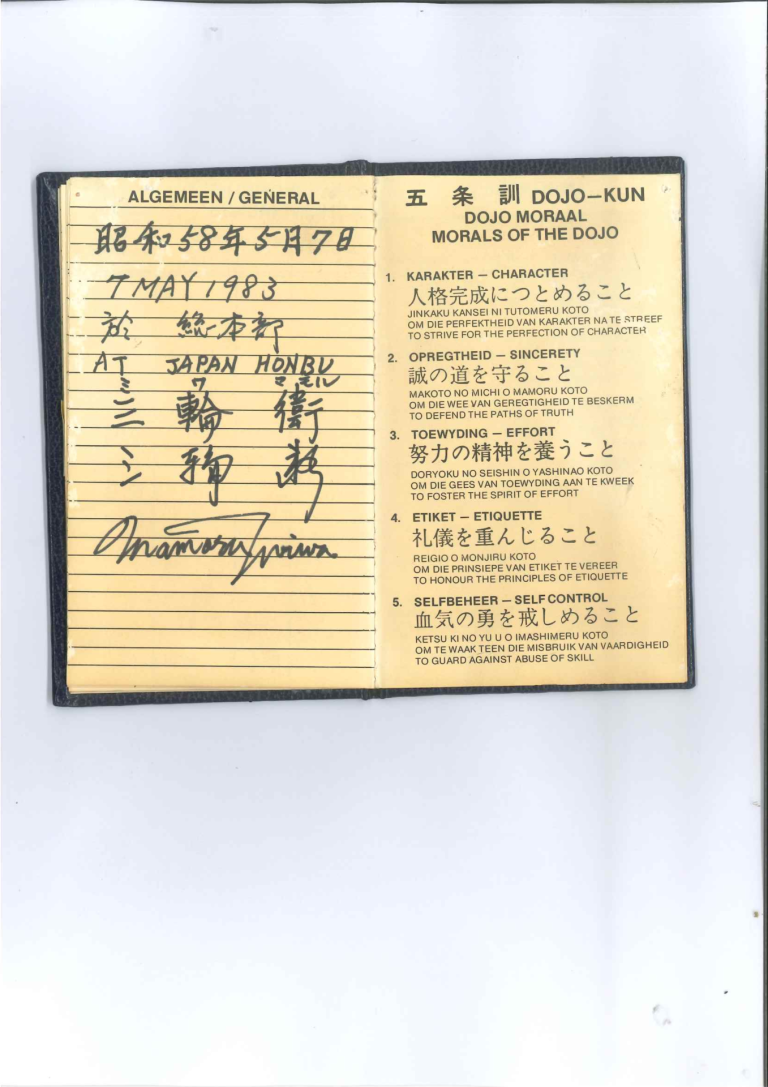 ALGEMEEN / GENERAL
昭和58年5月7日
7 MAY 1983
於 総本部
AT JAPAN HONBU
ミ ワ マモル
三 輪 衛
Mamoru Miwa
五条訓 DOJO–KUN
DOJO MORAAL
MORALS OF THE DOJO
1. KARAKTER – CHARACTER
人格完成につとめること
JINKAKU KANSEI NI TUTOMERU KOTO
OM DIE PERFEKTHEID VAN KARAKTER NA TE STREEF
TO STRIVE FOR THE PERFECTION OF CHARACTER
2. OPREGTHEID – SINCERETY
誠の道を守ること
MAKOTO NO MICHI O MAMORU KOTO
OM DIE WEE VAN GEREGTIGHEID TE BESKERM
TO DEFEND THE PATHS OF TRUTH
3. TOEWYDING – EFFORT
努力の精神を養うこと
DORYOKU NO SEISHIN O YASHINAO KOTO
OM DIE GEES VAN TOEWYDING AAN TE KWEEK
TO FOSTER THE SPIRIT OF EFFORT
4. ETIKET – ETIQUETTE
礼儀を重んじること
REIGIO O MONJIRU KOTO
OM DIE PRINSIEPE VAN ETIKET TE VEREER
TO HONOUR THE PRINCIPLES OF ETIQUETTE
5. SELFBEHEER – SELF CONTROL
血気の勇を戒しめること
KETSU KI NO YU U O IMASHIMERU KOTO
OM TE WAAK TEEN DIE MISBRUIK VAN VAARDIGHEID
TO GUARD AGAINST ABUSE OF SKILL